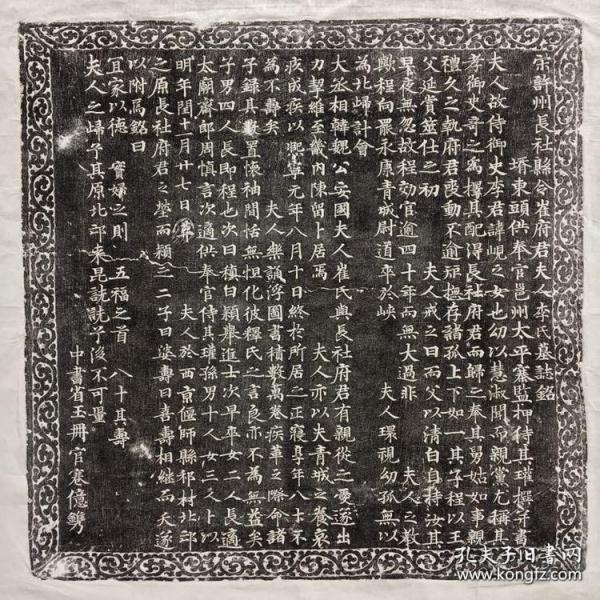 宋許州長社縣令崔府君夫人李氏墓誌銘
壻東頭供奉官邕州太平寨監押侍其璀撰并書
夫人故侍御史李君諱峴之女也幼以慧淑聞而親黨尤稱其
孝御史奇之為擇其配得長社府君而歸之奉其舅姑如事親
禮久之執府君喪動不逾 撫存諸孤上下如一其子程以王
父延賞筮仕之初 夫人戒之曰而父以清白自持汝其
夙夜無忽故程効官逾四十年而無大過非 夫人之教
歟程向罷永康青城尉道卒於峽 夫人環視幼孤無以
為北歸計會
大丞相韓魏公安國夫人崔氏與長社府君有親從之 遂出
力挈維至畿內陳留卜居焉 夫人亦以夫青城之養哀
疚成疾以熙寧元年八月十日終於所居之正寢享年八十不
為不壽矣 夫人樂誦浮圖書積數萬卷疾革之際命諸
子錄其數置懷袖間恬無怛化彼釋氏之言良亦不為無益矣
子男四人長即程也次曰稹曰穎舉進士次早卒女二人長適
太廟齋郎周慎言次適供奉官侍其璀孫男十人女三人卜以
明年閏十一月廿七日葬 夫人於西京偃師縣祁村北邙
之原長社府君之塋而穎三二子曰 壽曰喜壽相繼而夭遂
以附焉銘曰
宜家以德 實婦之則 五福之首 八十其壽
夫人之歸子其原北邙來昆詵詵子後不可量
中書省玉冊官寋億鐫
孔夫子旧书网
www.kongfz.com